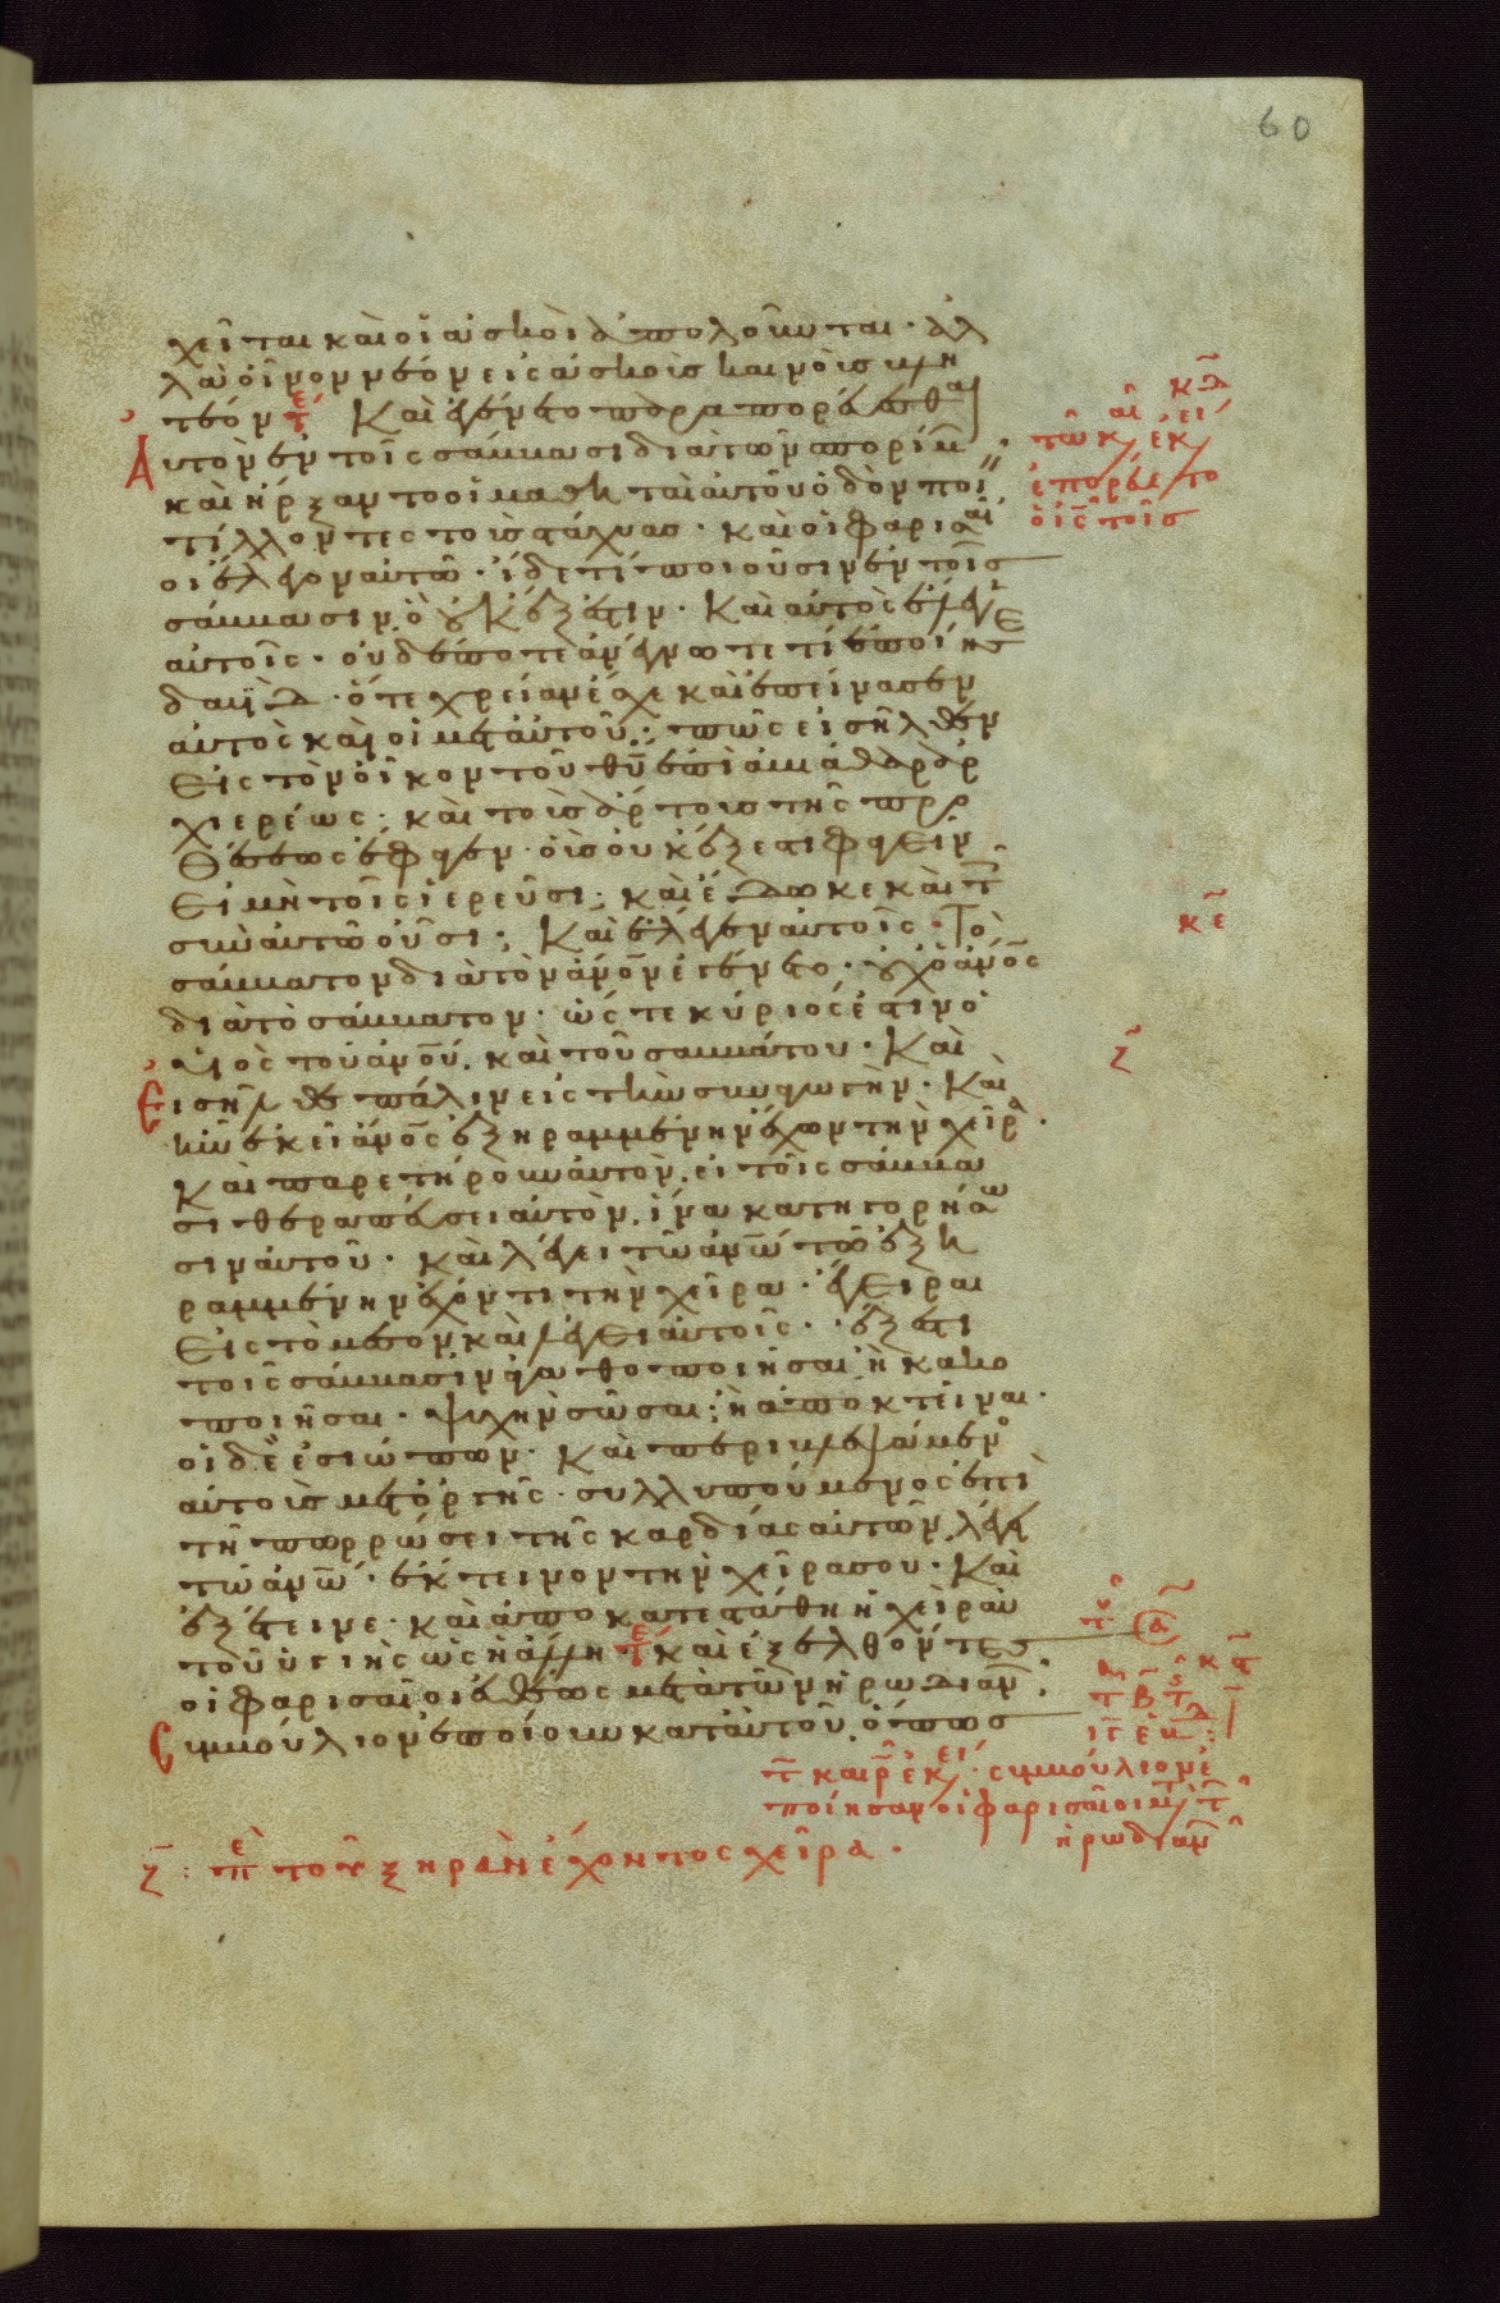 60
χεῖται καὶ οἱ ἀσκοὶ ἀπολοῦνται· ἀλ
λὰ οἶνον νέον εἰς ἀσκοὺς καινοὺς βλη
τέον τε Καὶ ἐγένετο παραπορεύεσθαι
Αυτὸν ἐν τοῖς σάββασι διὰ τῶν σπορίμ
καὶ ἤρξαντο οἱ μαθηταὶ αὐτοῦ ὁδὸν ποι
τίλλοντες τοὺς στάχυας· καὶ οἱ φαρισαι
οι ἔλεγον αὐτῶ· ἴδε τί ποιοῦσιν ἐν τοῖς
σάββασιν ὃ οὐκ ἔξεστιν· Καὶ αὐτὸς ἔλεγε
αὐτοῖς· οὐδέποτε ἀνέγνωτε τί ἐποίησε
δαυΐδ· ὅτε χρείαν ἔσχε καὶ ἐπείνασεν
αὐτὸς καὶ οἱ μετ αὐτοῦ· πῶς εἰσῆλθεν
Εἰς τὸν οἶκον τοῦ θυ ἐπὶ ἀβιάθαρ ἀρ
χιερέως· καὶ τοὺς ἄρτους τῆς προ
θέσεως ἔφαγεν· οὓς οὐκ ἔξεστι φαγεῖν
Εἰ μὴ τοῖς ἱερεῦσι· καὶ ἔδωκε καὶ τ
σὺν αὐτῶ οὖσι· Καὶ ἔλεγεν αὐτοῖς· Τὸ
σάββατον διὰ τὸν ἄνον ἐγένετο· οὐχ ὁ ἄνος
διὰ τὸ σάββατον· ὥς τε κύριός ἐστιν ὁ
υἱὸς τοῦ ἀνου, καὶ τοῦ σαββάτου· Καὶ
Εισῆλθε πάλιν εἰς τὴν συναγωγήν· Καὶ
ἦν ἐκεῖ ἄνος ἐξηραμμένην ἔχων τὴν χεῖρα·
Καὶ παρετήρουν αὐτὸν, εἰ τοῖς σάββα
σι θεραπεύσει αὐτὸν, ἵνα κατηγορήσω
σιν αὐτοῦ· καὶ λέγει τῶ ἀνω τῶ ἐξη
ραμμένην ἔχοντι τὴν χεῖρα· ἔγειραι
Εἰς τὸ μέσον καὶ λέγει αὐτοῖς· ἔξεστι
τοῖς σάββασιν ἀγαθοποιῆσαι ἢ κακο
ποιῆσαι· ψυχὴν σῶσαι· ἢ ἀποκτεῖναι·
οἱ δὲ ἐσιώπων· Καὶ περιβλεψάμενο
αὐτοὺς μετ ὀργῆς· συλλυπούμενος ἐπὶ
τῆ πωρρώσει τῆς καρδίας αὐτῶν, λέγει
τῶ ἀνω· ἔκτεινον τὴν χεῖρα σου· Καὶ
ἐξέτεινε· καὶ ἀποκατεστάθη ἡ χεὶρ αὐ
τοῦ ὑγιὴς ὡς ἡ ἄλλη τε καὶ ἐξελθόντες
οἱ φαρισαῖοι εὐθέως μετὰ τῶν ἡρωδιαν
Συμβούλιον ἐποίουν κατ αὐτοῦ, ὅπως
κδ
τῶ κ ἐκ
ἐπορεύετο
ὁ ις τοῖς
κε
ζ
κς
τ καιρ ἐκει· συμβούλιον ἐ
ποίησαν οἱ φαρισαῖοι μ τ
ἡρωδιαν
ζ: πε τοῦ ξηρὰν ἔχοντος χεῖρα·